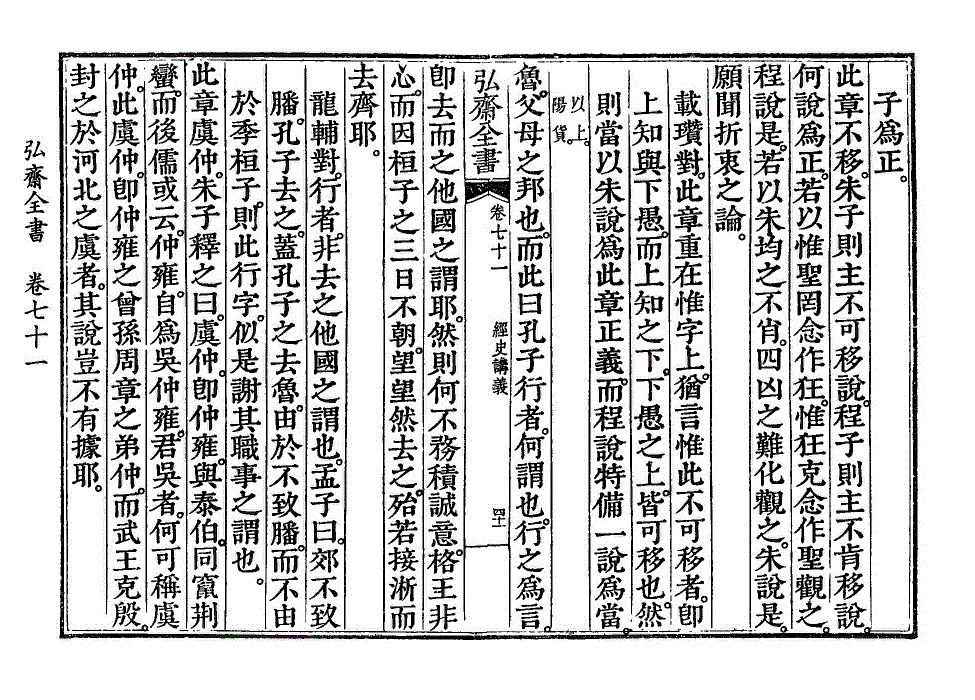 子爲正。
此章不移。朱子則主不可移說。程子則主不肯移說。
何說爲正。若以惟聖罔念作狂。惟狂克念作聖觀之。
程說是。若以朱均之不肖。四凶之難化觀之。朱說是。
願聞折衷之論。
載瓚對。此章重在惟字上。猶言惟此不可移者。卽
上知與下愚。而上知之下。下愚之上。皆可移也。然
則當以朱說爲此章正義。而程說特備一說爲當。
以上。
陽貨。
魯父母之邦也。而此曰孔子行者。何謂也。行之爲言。
弘齋全書
卷七十一
經史講義
四十二
卽去而之他國之謂耶。然則何不務積誠意。格王非
心。而因桓子之三日不朝。望望然去之。殆若接淅而
去齊耶。
龍輔對。行者。非去之他國之謂也。孟子曰。郊不致
膰。孔子去之。蓋孔子之去魯。由於不致膰。而不由
於季桓子。則此行字。似是謝其職事之謂也。
此章虞仲。朱子釋之曰。虞仲。卽仲雍。與泰伯。同竄荆
蠻。而後儒或云。仲雍。自爲吳仲雍。君吳者。何可稱虞
仲。此虞仲。卽仲雍之曾孫周章之弟仲。而武王克殷。
封之於河北之虞者。其說豈不有據耶。
弘齋全書 卷七十一